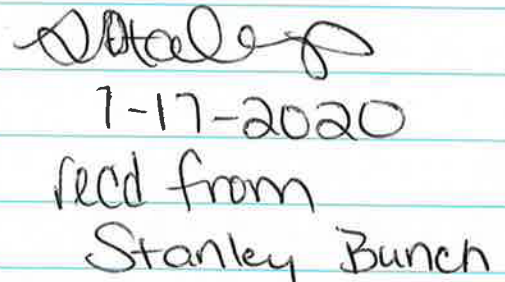 7-17-2020
recd from
Stanley Bunch